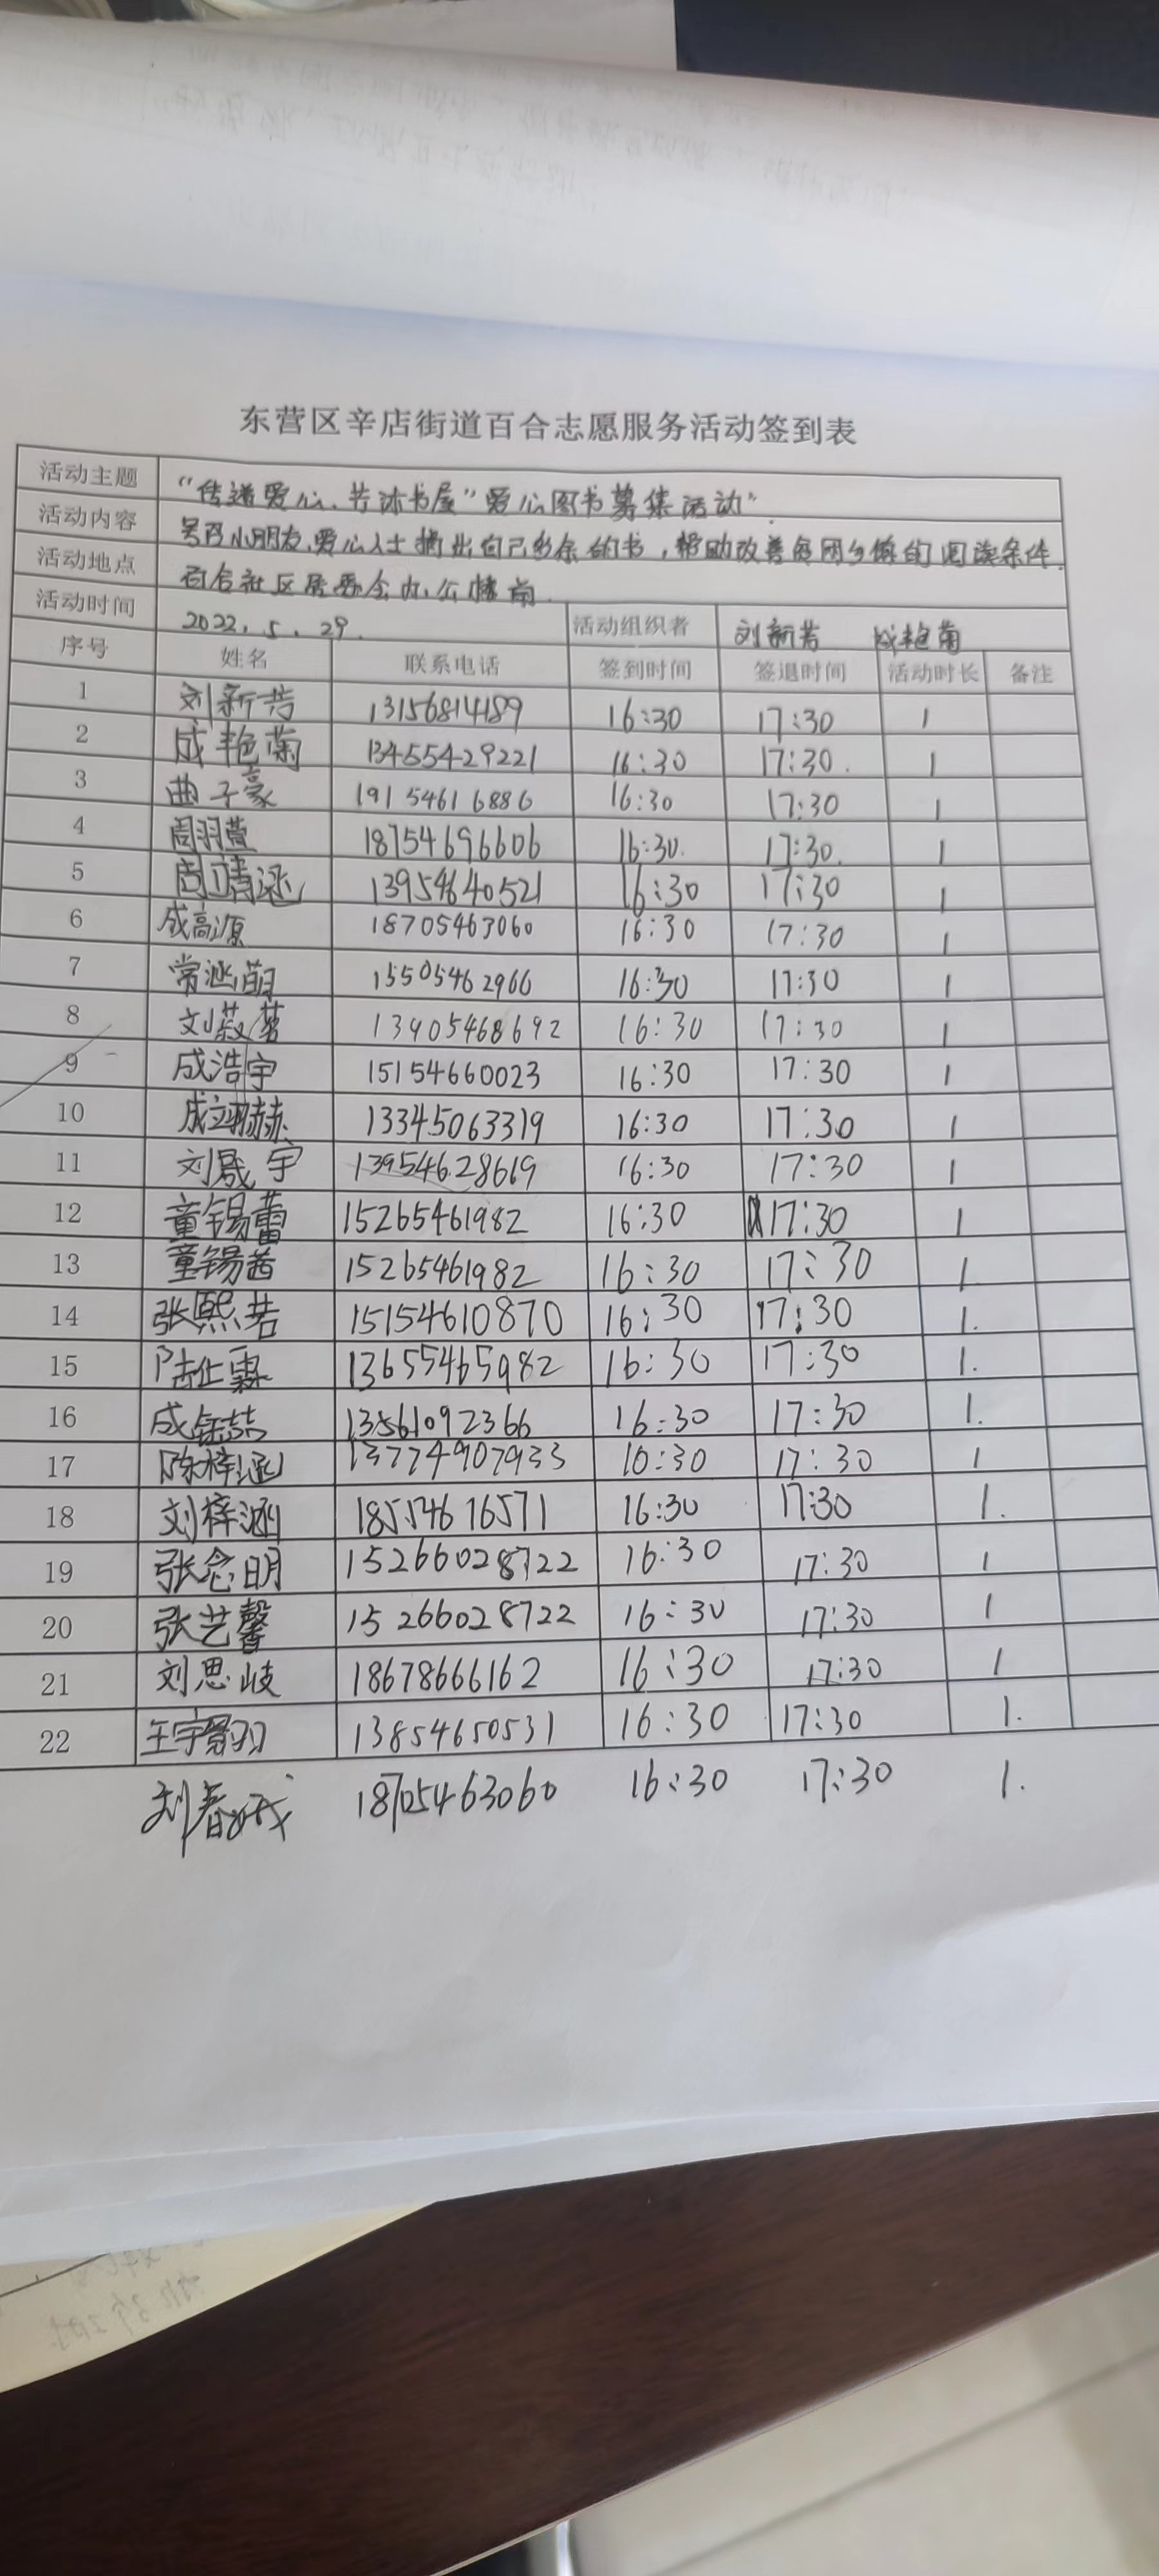 东营区辛店街道百合志愿服务活动签到表
活动主题 “传递爱心、共沐书屋”爱心图书募集活动”
活动内容 号召小朋友、爱心人士捐出自己多余的书,帮助改善贫困乡镇的阅读条件.
活动地点 百合社区居委会办公楼前.
活动时间 2022.5.29. 活动组织者 刘新芳 成艳菊
序号 姓名 联系电话 签到时间 签退时间 活动时长 备注
1 刘新芳 13156814189 16:30 17:30 1
2 成艳菊 13455429221 16:30 17:30. 1
3 曲子豪 19154616886 16:30 17:30 1
4 周羽萱 18754696606 16:30. 17:30. 1
5 周靖涵 13954640521 16:30 17:30 1
6 成高源 18705463060 16:30 17:30 1
7 常涵萌 15505462966 16:30 17:30 1
8 刘蔌茗 13905468692 16:30 17:30 1
9 成浩宇 15154660023 16:30 17:30 1
10 成翊赫 13345063319 16:30 17:30 1
11 刘晟宇 13954628619 16:30 17:30 1
12 童锡蕾 15265461982 16:30 17:30 1
13 童锡茜 15265461982 16:30 17:30 1
14 张熙若 15154610870 16:30 17:30 1.
15 陆仕霖 13655465982 16:30 17:30 1.
16 成钰喆 13561092366 16:30 17:30 1.
17 陈梓涵 13774907933 16:30 17:30 1
18 刘梓涵 18554676571 16:30 17:30 1.
19 张念明 15266028722 16:30 17:30 1
20 张艺馨 15266028722 16:30 17:30 1
21 刘思岐 18678666162 16:30 17:30 1
22 王宇 13854650531 16:30 17:30 1.
刘春 18705463060 16:30 17:30 1.